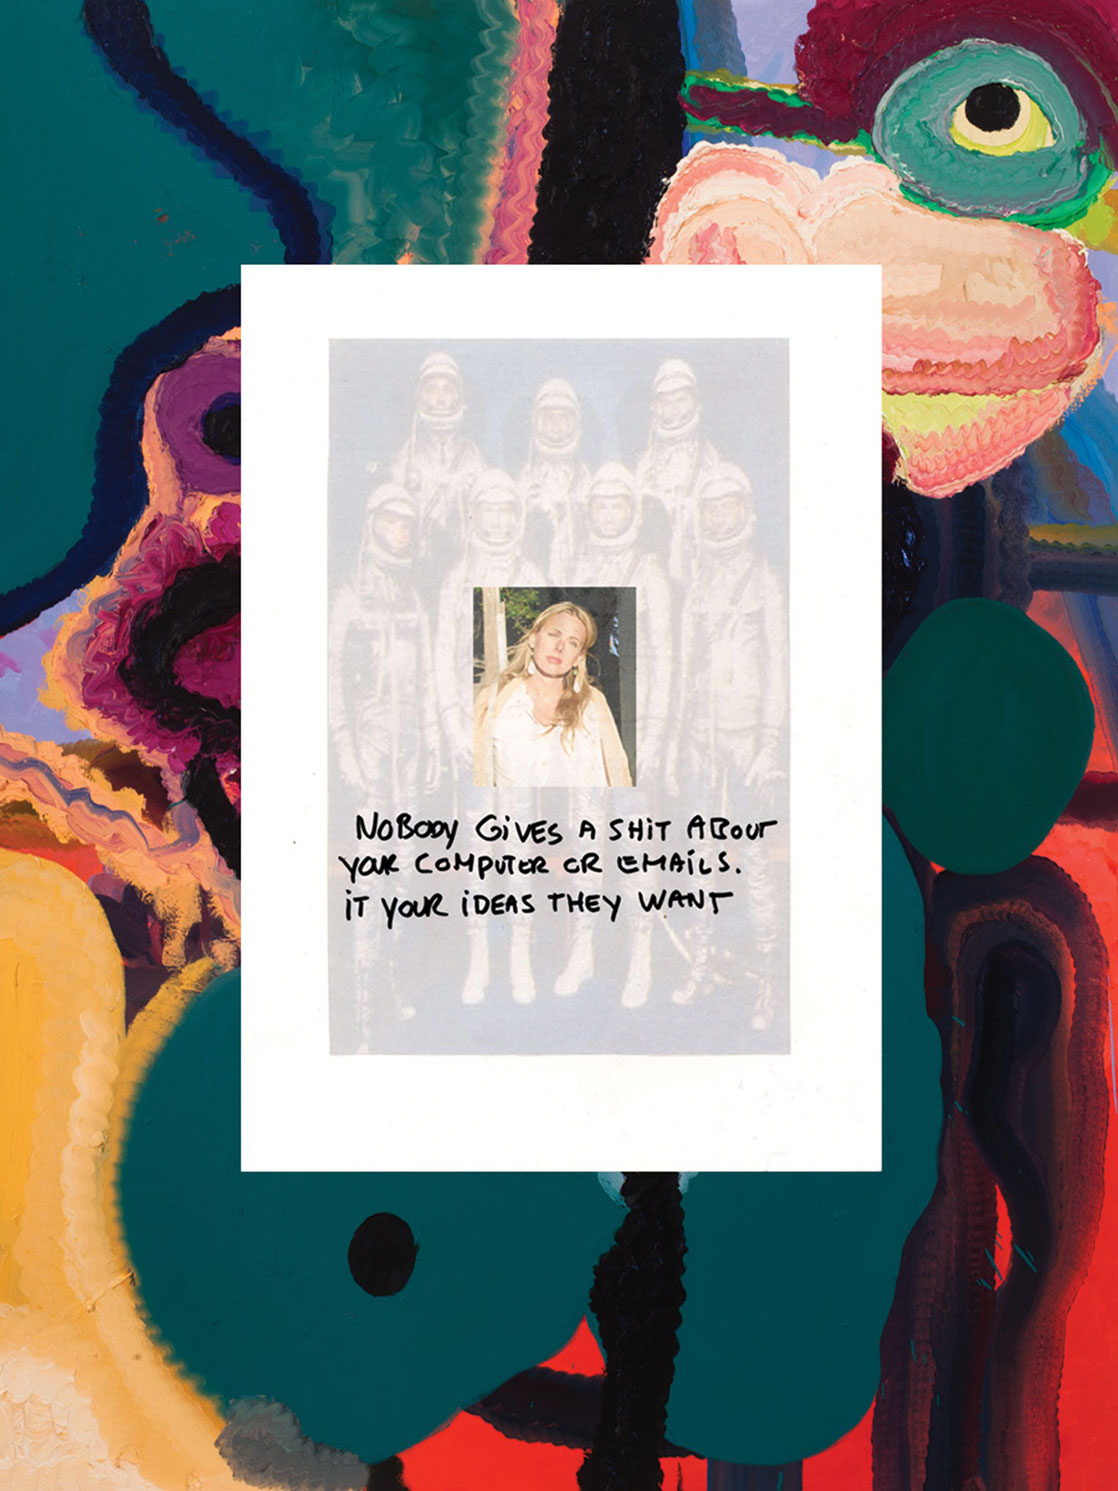 NOBODY GIVES A SHIT ABOUT
YOUR COMPUTER OR EMAILS.
IT YOUR IDEAS THEY WANT